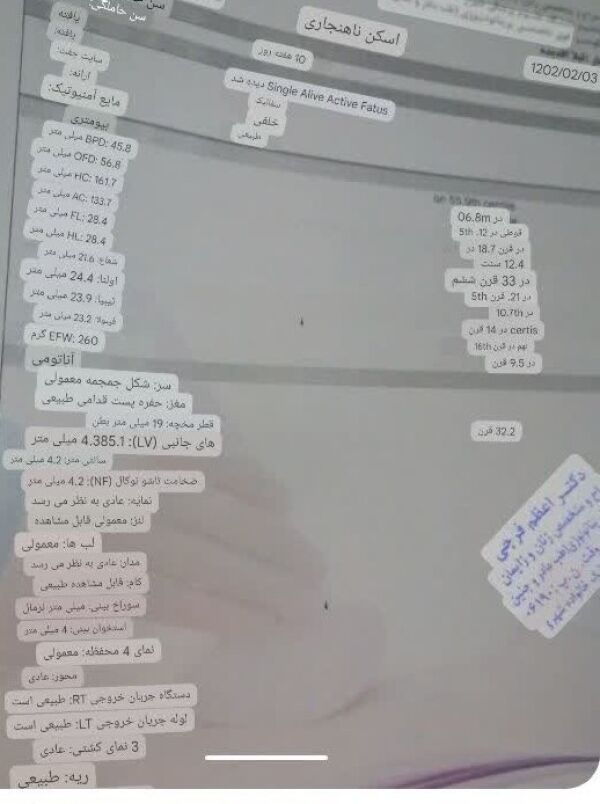 سن حاملگی:
اسکن ناهنجاری
1202/02/03
یافته
یافته:
10 هفته روز
سایت جفت:
ارائه:
Single Alive Active Fatus دیده شد
مایع آمنیوتیک:
سفالیک
خلفی
طبیعی
بیومتری
BPD: 45.8 میلی متر
OFD: 56.8 میلی متر
HC: 161.7 میلی متر
AC: 133.7 میلی متر
FL: 28.4 میلی متر
HL: 28.4 میلی متر
شعاع: 21.6 میلی متر
اولنا: 24.4 میلی متر
تیبیا: 23.9 میلی متر
فیبولا: 23.2 میلی متر
EFW: 260 گرم
در 06.8m
قوطی در 12. 5th
در قرن 18.7 در
12.4 سنت
در 33 قرن ششم
در 21. قرن 5th
در 10.7th
certis در 14 قرن
نهم در قرن 16th
در 9.5 قرن
آناتومی
سر: شکل جمجمه معمولی
مغز: حفره پست قدامی طبیعی
قطر مخچه: 19 میلی متر بطن
های جانبی (LV): 4.385.1 میلی متر
32.2 قرن
سانتی متر: 4.2 میلی متر
ضخامت تاشو نوکال (NF): 4.2 میلی متر
نمایه: عادی به نظر می رسد
لنز: معمولی قابل مشاهده
لب ها: معمولی
مدار: عادی به نظر می رسد
کام: قابل مشاهده طبیعی
سوراخ بینی: میلی متر نرمال
استخوان بینی: 4 میلی متر
نمای 4 محفظه: معمولی
محور: عادی
دستگاه جریان خروجی RT: طبیعی است
لوله جریان خروجی LT: طبیعی است
3 نمای کشتی: عادی
ریه: طبیعی
دکتر اعظم فرخی
متخصص زنان و زایمان